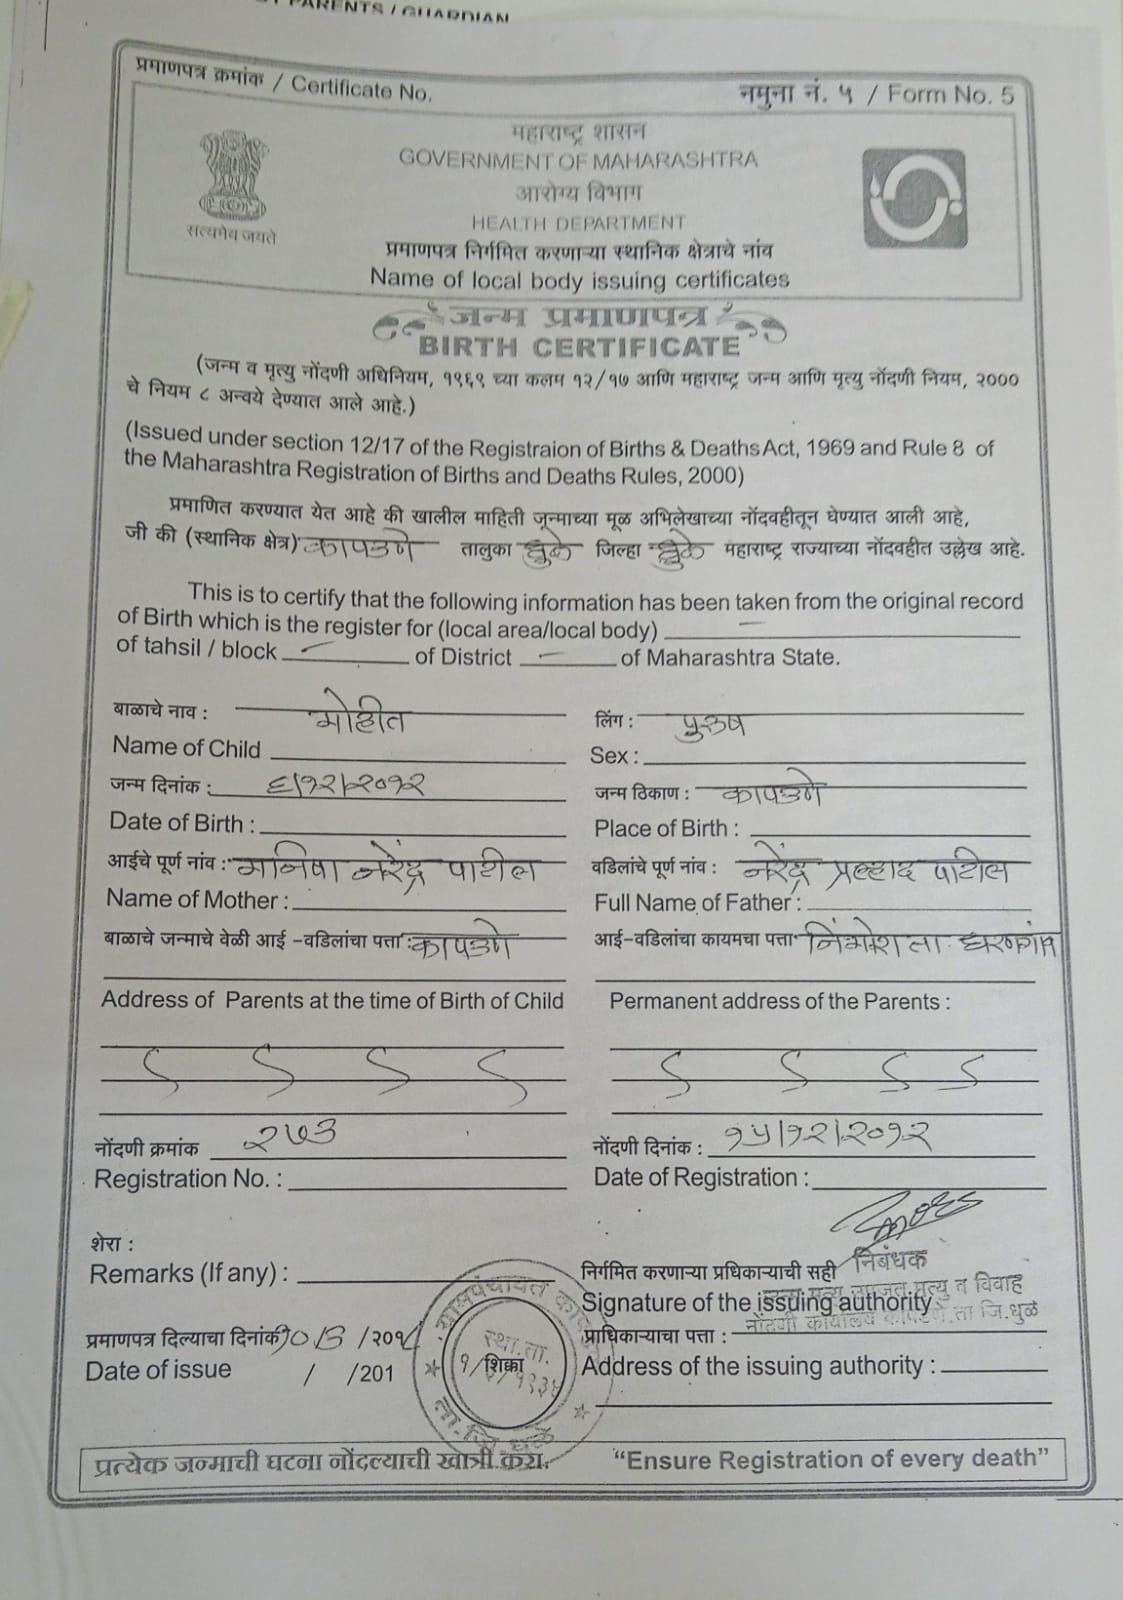 PARENTS / GUARDIAN
प्रमाणपत्र क्रमांक / Certificate No.
नमुना नं. ५ / Form No. 5
महाराष्ट्र शासन
GOVERNMENT OF MAHARASHTRA
आरोग्य विभाग
HEALTH DEPARTMENT
सत्यमेव जयते
प्रमाणपत्र निर्गमित करणाऱ्या स्थानिक क्षेत्राचे नांव
Name of local body issuing certificates
जन्म प्रमाणपत्र
BIRTH CERTIFICATE
(जन्म व मृत्यु नोंदणी अधिनियम, १९६९ च्या कलम १२/१७ आणि महाराष्ट्र जन्म आणि मृत्यु नोंदणी नियम, २०००
चे नियम ८ अन्वये देण्यात आले आहे.)
(Issued under section 12/17 of the Registraion of Births & Deaths Act, 1969 and Rule 8 of
the Maharashtra Registration of Births and Deaths Rules, 2000)
प्रमाणित करण्यात येत आहे की खालील माहिती जून्माच्या मूळ अभिलेखाच्या नोंदवहीतून घेण्यात आली आहे,
जी की (स्थानिक क्षेत्र) कापडणे तालुका धुळे जिल्हा धुळे महाराष्ट्र राज्याच्या नोंदवहीत उल्लेख आहे.
This is to certify that the following information has been taken from the original record
of Birth which is the register for (local area/local body)
of tahsil / block of District of Maharashtra State.
बाळाचे नाव : मोहीत लिंग : पुरुष
Name of Child Sex :
जन्म दिनांक : ६/१२/२०१२ जन्म ठिकाण : कापडणे
Date of Birth : Place of Birth :
आईचे पूर्ण नांव : मनिषा नरेंद्र पाटील वडिलांचे पूर्ण नांव : नरेंद्र प्रल्हाद पाटील
Name of Mother : Full Name of Father :
बाळाचे जन्माचे वेळी आई -वडिलांचा पत्ता : कापडणे आई-वडिलांचा कायमचा पत्ता ता. धरणगांव
Address of Parents at the time of Birth of Child Permanent address of the Parents :
नोंदणी क्रमांक २७३ नोंदणी दिनांक : १५/१२/२०१२
Registration No. : Date of Registration :
शेरा :
Remarks (If any) :
निर्गमित करणाऱ्या प्रधिकाऱ्याची सही निबंधक
Signature of the issuing authority
जन्म मृत्यु मृत्यु व विवाह
नोंदणी कार्यालय कापडणे.ता जि.धुळे
प्रमाणपत्र दिल्याचा दिनांक /२०१८ प्राधिकाऱ्याचा पत्ता :
Date of issue / /201 Address of the issuing authority :
ग्रामपंचायत
स्था.ता.
शिक्का
ता.जि.धुळे
प्रत्येक जन्माची घटना नोंदल्याची खात्री करा. "Ensure Registration of every death"